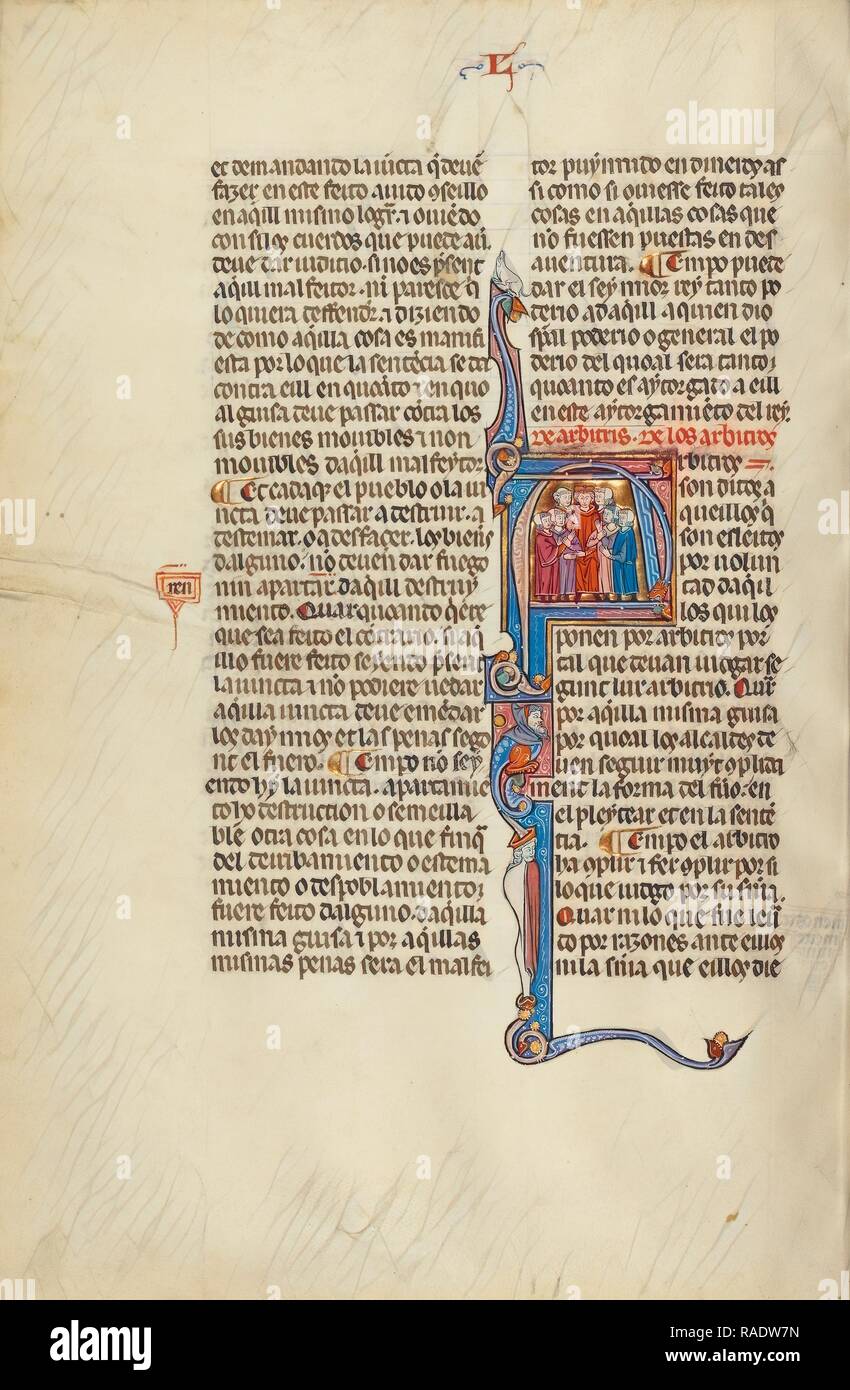 L
et demandando la iũcta q̃ deuẽ
fazer en este feito auido ꝯseillo
en aq̃ill mismo logr̃. ⁊ ouiẽdo
conseios cuerdos que puede auer
deue dar iudicio. si no es p̃sent
aq̃ill malfeitor. ni paresce q̃
lo quiera deffender. ⁊ diziendo
de como aq̃illa cosa es manifi
esta por lo que la sentẽcia se da
contra eill en quoãto ⁊ en quo
al guisa deue passar cõtra los
sus bienes mouibles ⁊ non
mouibles daq̃ill malfeytor.
¶ Et cada q̃ el pueblo o la iũ
ncta deue passar a destruir. a
destemar. o a desfaçer. los bienes
dalguno. nõ deuen dar fuego
nin apartar daq̃ill destruy
miento. Quar quoando q̃ẽre
que sea feito el cõtrario. si aq̃
illo fuere feito seyendo p̃sent
la iuncta ⁊ nõ podiere uedar
aq̃illa iuncta deue emẽdar
los daynnos et las penas segõ
nt el fuero. ¶ Empo nõ sey
endo hy la iuncta. apartamiẽ
to. o destruction o semeilla
ble otra cosa en lo que finq̃
del derribamiento o estema
miento o despoblamiento;
fuere feito dalguno. daq̃illa
misma guisa ⁊ por aq̃illas
mismas penas sera el malfei
ren
tor puynnido en dineros as
si como si ouiesse feito tales
cosas en aq̃illas cosas que
nõ fuessen puestas en des
auentura. ¶ Empo puede
dar el seynnor rey tanto po
derio ad aq̃ill a quien dio
sp̃al poderio o general el po
derio del quoal sera tanto;
quoanto es aytorgado a eill
en este aytorgamiẽto del rey.
De arbitris. De los arbitros
Arbitros
son ditos a
queillos q̃
son esleitos
por uolun
tad daq̃il
los qui los
ponen por arbitros por
tal que deuan iudgar se
gunt lur arbitrio. Quar
por aq̃illa misma guisa
por quoal los alcaldes de
uen seguir muyt ꝯplida
ment la forma del fũo. en
el pleytear et en la sentẽ
cia. ¶ Empo el arbitro
ha ꝯplir ⁊ fer ꝯplir por si
lo que iudgo por su sñia.
Quar ni lo que fue
to por razones ante eillos
ni la sñia que eillos die
alamy
Image ID: RADW7N
www.alamy.com